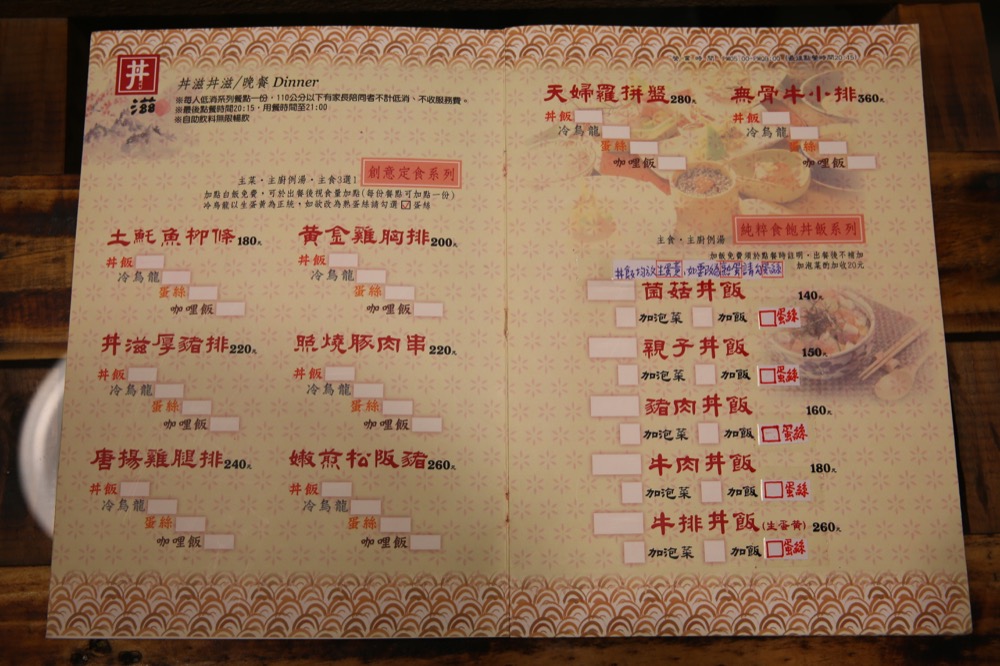 丼
滋
丼滋丼滋/晚餐 Dinner
※每人低消系列餐點一份，110公分以下有家長陪同者不計低消、不收服務費。
※最後點餐時間20:15，用餐時間至21:00
※自助飲料無限暢飲
創意定食系列
主菜・主廚例湯・主食3選1
加點白飯免費，可於出餐後視食量加點(每份餐點可加點一份)
冷烏龍以生蛋黃為正統，如欲改為熟蛋絲請勾選☑蛋絲
土魠魚柳條180元
丼飯
冷烏龍
蛋絲
咖哩飯
黃金雞胸排200元
丼飯
冷烏龍
蛋絲
咖哩飯
丼滋厚豬排220元
丼飯
冷烏龍
蛋絲
咖哩飯
照燒豚肉串220元
丼飯
冷烏龍
蛋絲
咖哩飯
唐揚雞腿排240元
丼飯
冷烏龍
蛋絲
咖哩飯
嫩煎松阪豬260元
丼飯
冷烏龍
蛋絲
咖哩飯
天婦羅拼盤280元
丼飯
冷烏龍
蛋絲
咖哩飯
無骨牛小排360元
丼飯
冷烏龍
蛋絲
咖哩飯
純粹食飽丼飯系列
主食・主廚例湯
加飯免費須於點餐時註明，出餐後不補加
加泡菜酌加收20元
菌菇丼飯 140元
加泡菜 加飯 蛋絲
親子丼飯 150元
加泡菜 加飯 蛋絲
豬肉丼飯 160元
加泡菜 加飯 蛋絲
牛肉丼飯 180元
加泡菜 加飯 蛋絲
牛排丼飯(生蛋黃) 260元
加泡菜 加飯 蛋絲